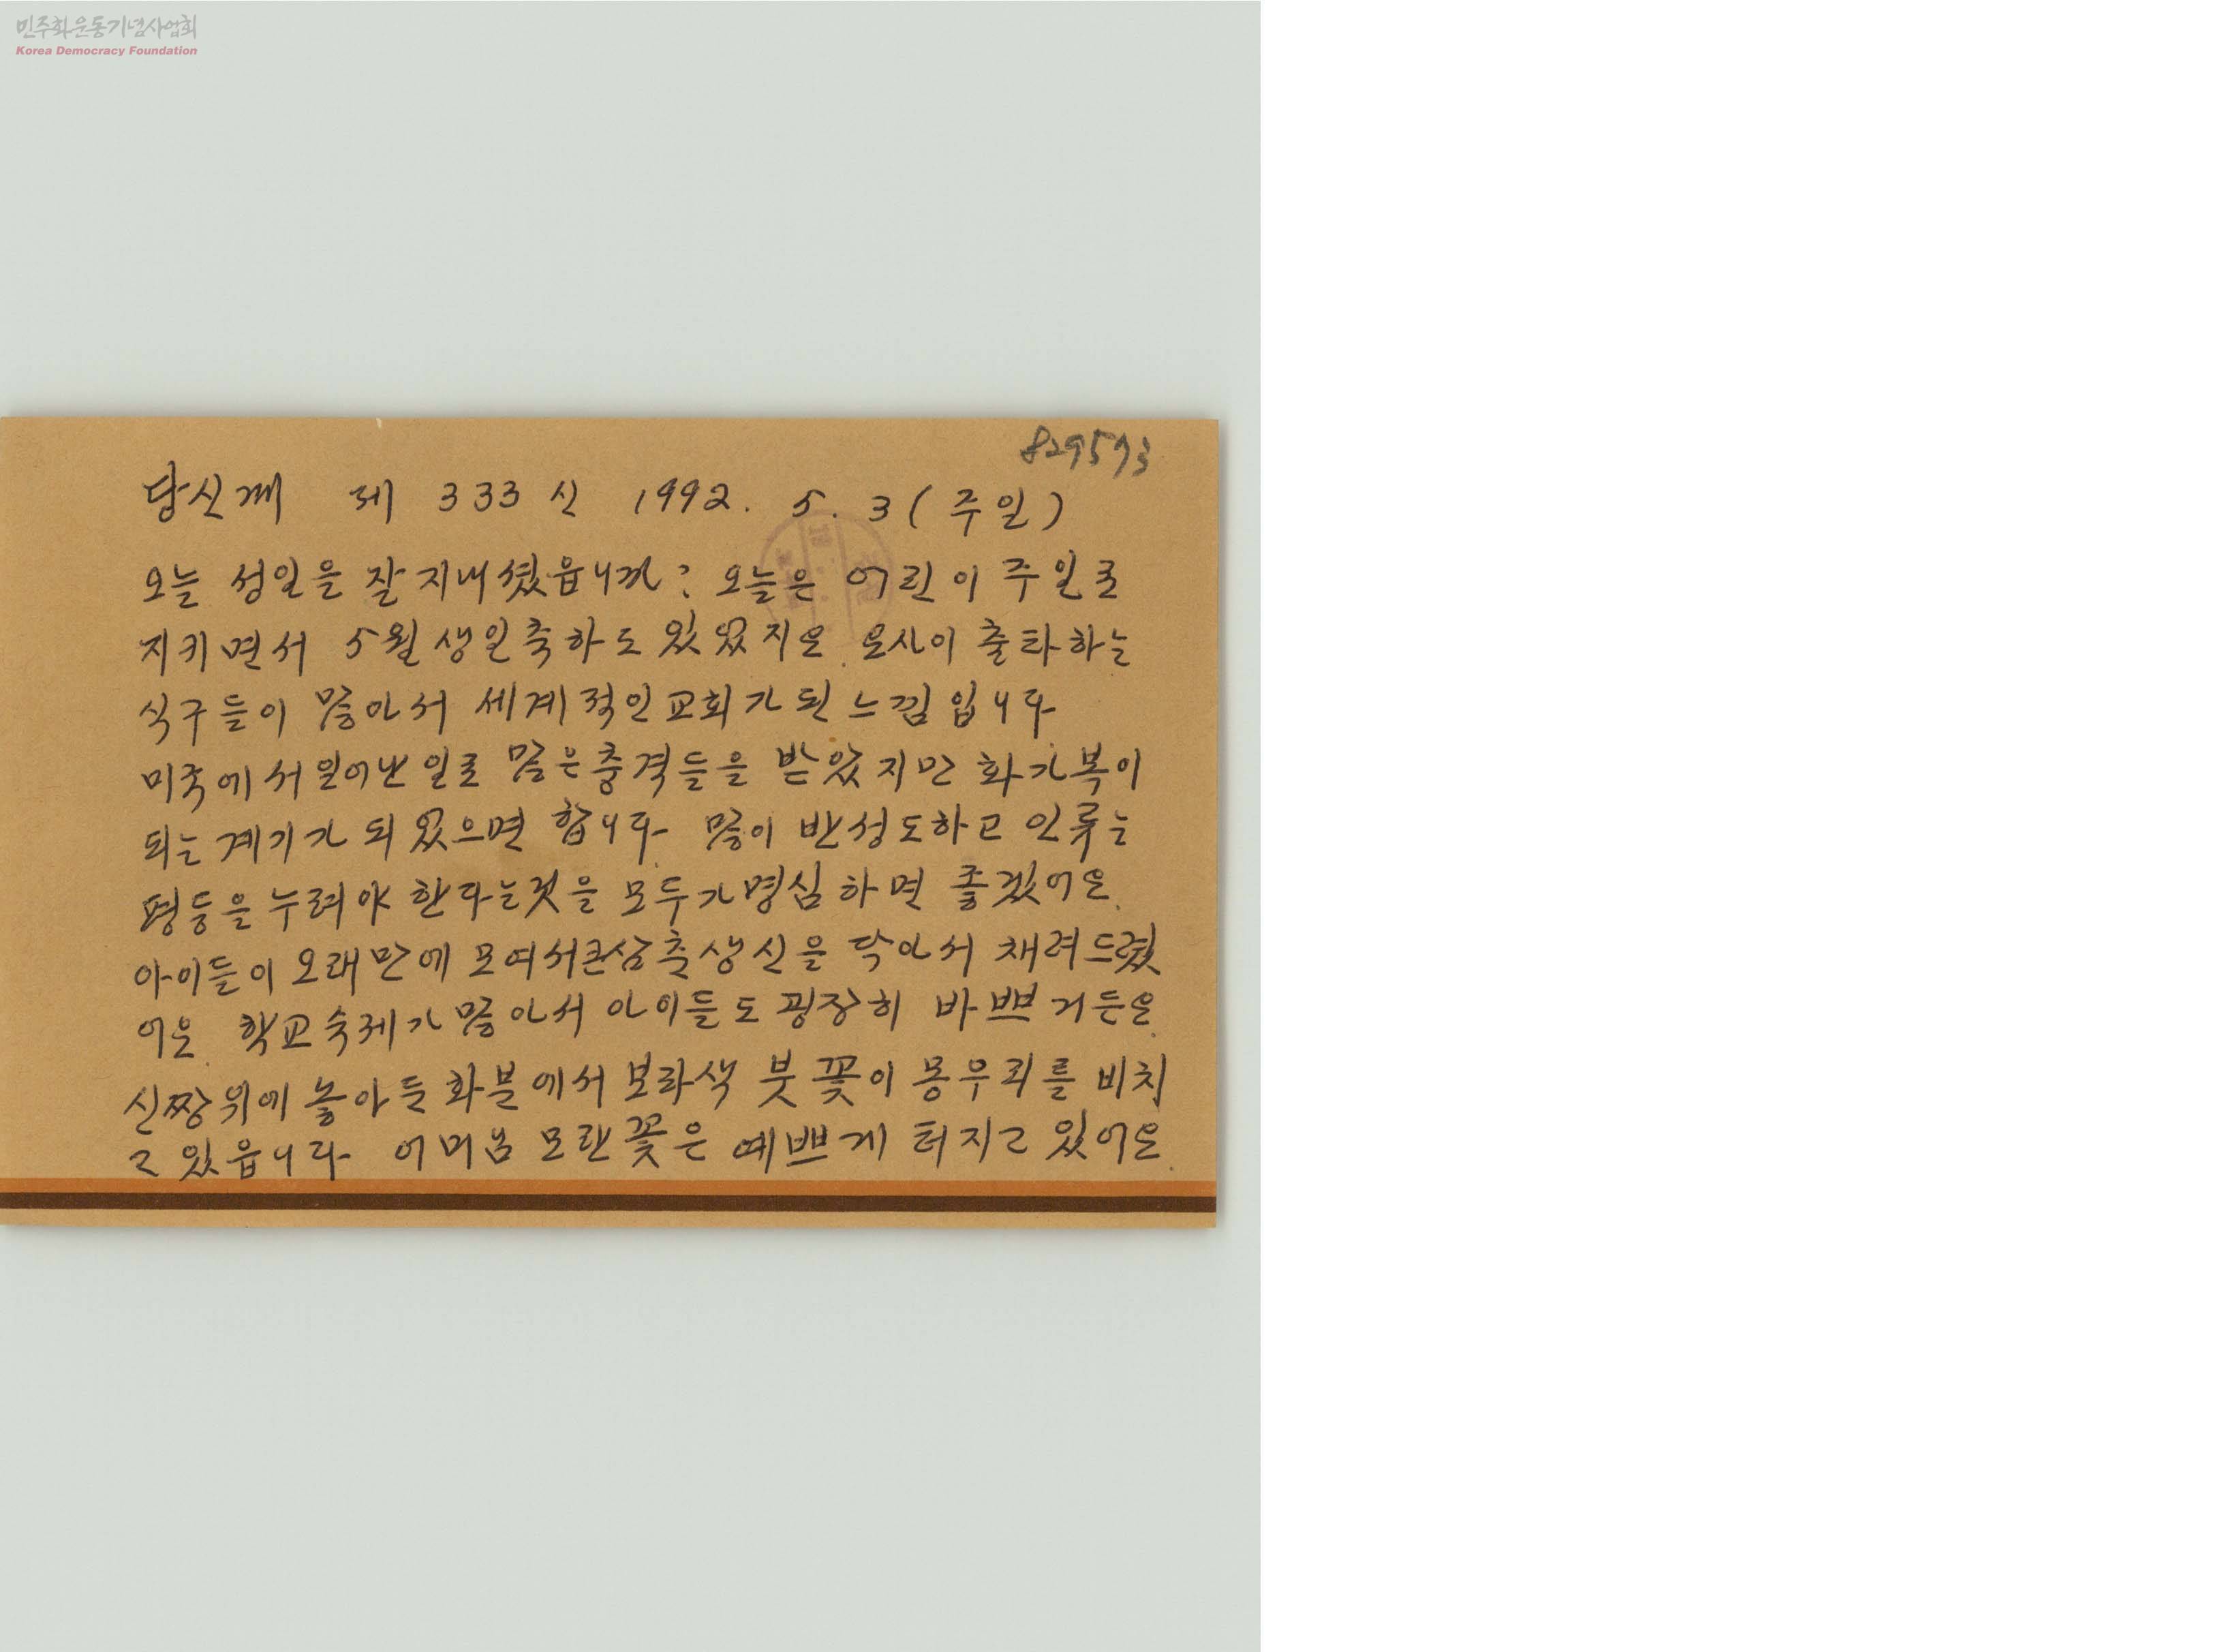 민주화운동기념사업회
Korea Democracy Foundation
829573
당신께 제 333 신 1992. 5. 3 (주일)
오늘 성일을 잘 지내셨읍니까? 오늘은 어린이 주일로
지키면서 5월 생일축하도 있었지요. 모시이 출타하는
식구들이 많아서 세계적인 교회가 된 느낌입니다.
미국에서 일어난 일로 많은 충격들을 받았지만 화가 복이
되는 계기가 되었으면 합니다. 많이 반성도하고 인류는
평등을 누려야 한다는것을 모두가 명심하면 좋겠어요.
아이들이 오래만에 모여서 큰삼촌 생신을 닥아서 채려드렸
어요. 학교숙제가 많아서 아이들도 굉장히 바쁘거든요.
신짱위에 놓아둔 화분에서 보라색 붓꽃이 몽우리를 비치
고 있읍니다. 어머님 모란꽃은 예쁘게 터지고 있어요.